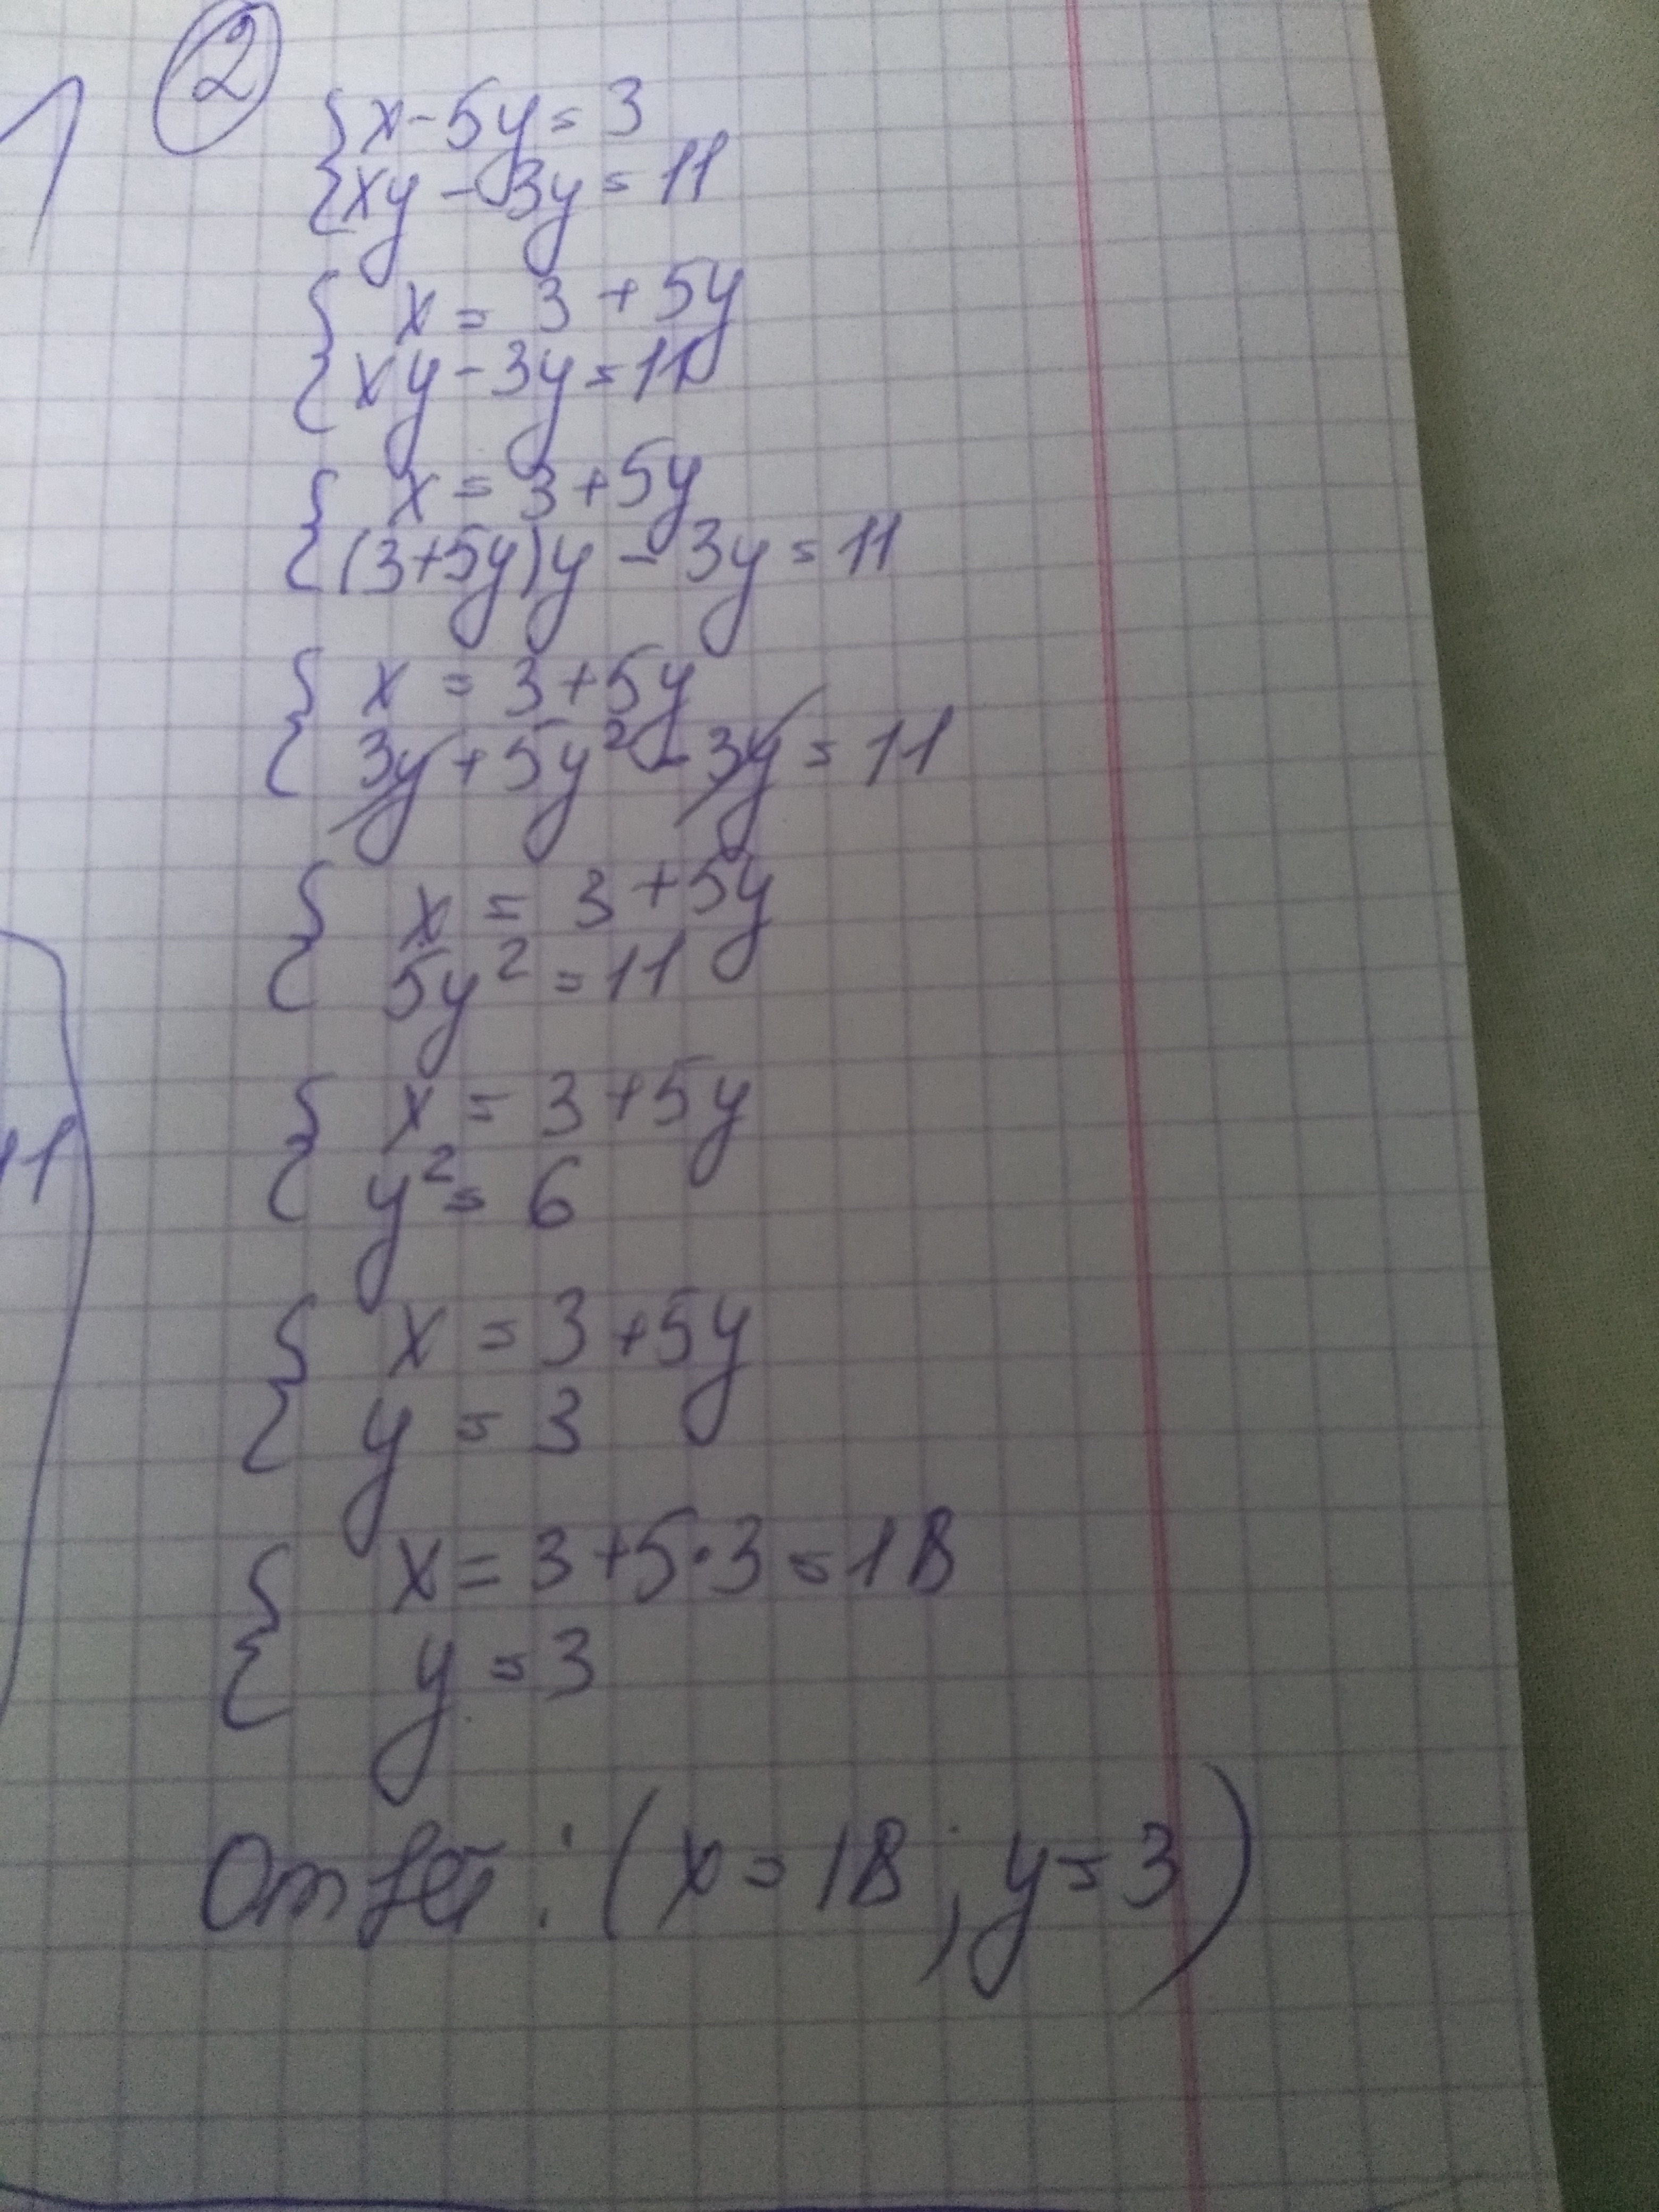 ②
{ x - 5y = 3
{ xy - 3y = 11
{ x = 3 + 5y
{ xy - 3y = 11
{ x = 3 + 5y
{ (3+5y)y - 3y = 11
{ x = 3 + 5y
{ 3y + 5y² - 3y = 11
{ x = 3 + 5y
{ 5y² = 11
{ x = 3 + 5y
{ y² = 6
{ x = 3 + 5y
{ y = 3
{ x = 3 + 5·3 = 18
{ y = 3
Ответ: (x = 18; y = 3)